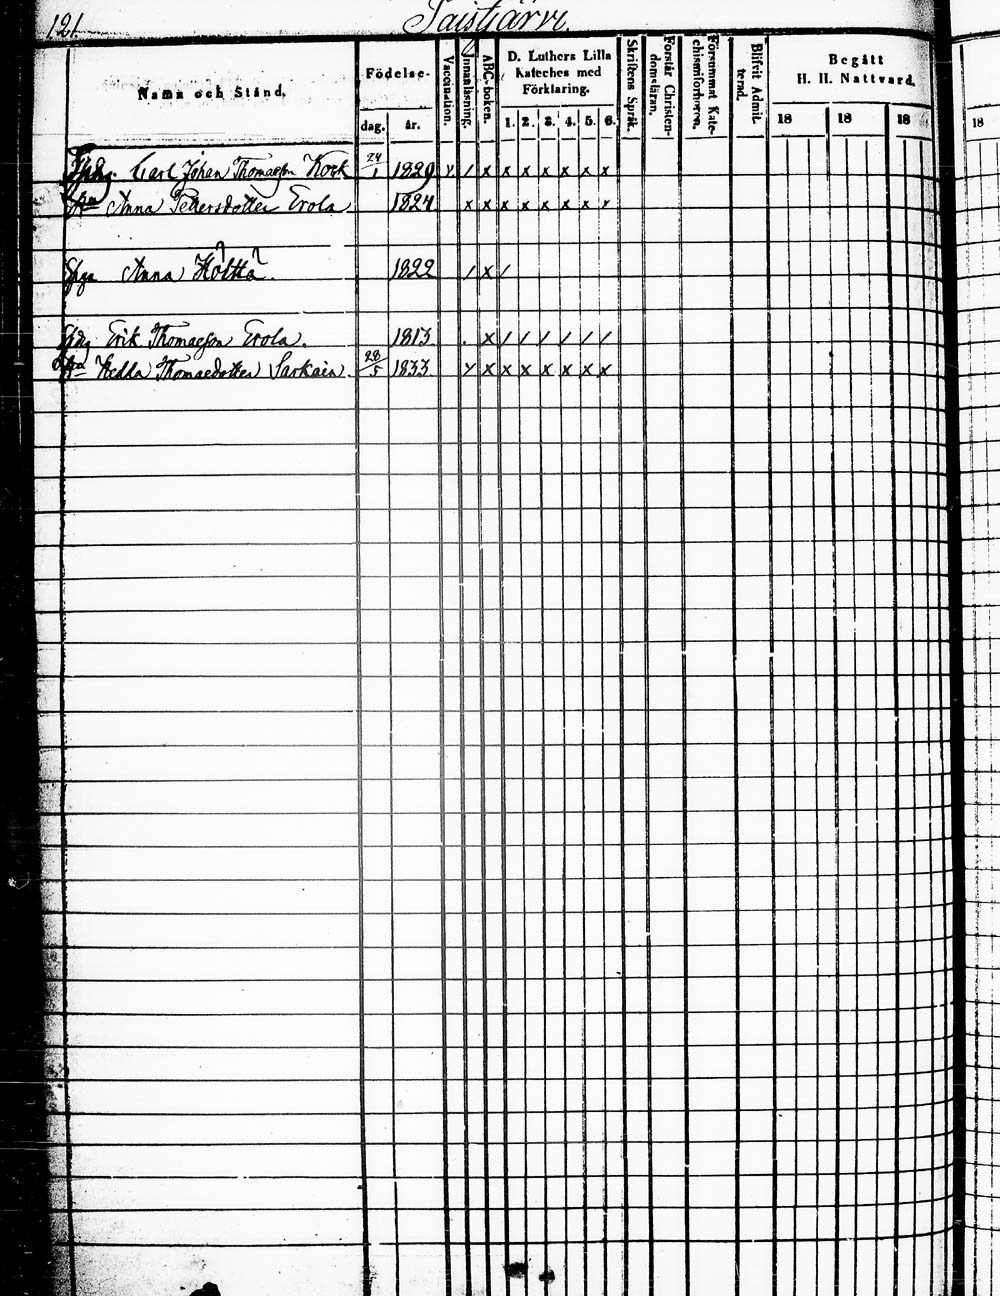 121.
Paistjärvi.
Namn och Stånd.
Födelse-
dag. år.
Vaccination.
Innanläsning.
ABC-boken.
D. Luthers Lilla
Kateches med
Förklaring.
1. 2. 3. 4. 5. 6.
Skriftens Språk.
Förstår Christen-
domsläran.
Försummat Kate-
chismiförhören.
Blifvit Admit-
terad.
Begått
H. H. Nattvard.
18 18 18
18
Carl Johan Thomasson Kock 24/1 1829 v / x x x x x x x
Anna Pettersdotter Erola 1824 x x x x x x x x
Anna Höltta. 1822 / x /
Erik Thomasson Erola. 1813 . x / / / / / /
Hedda Thomasdotter Sarkain. 28/5 1833 v x x x x x x x